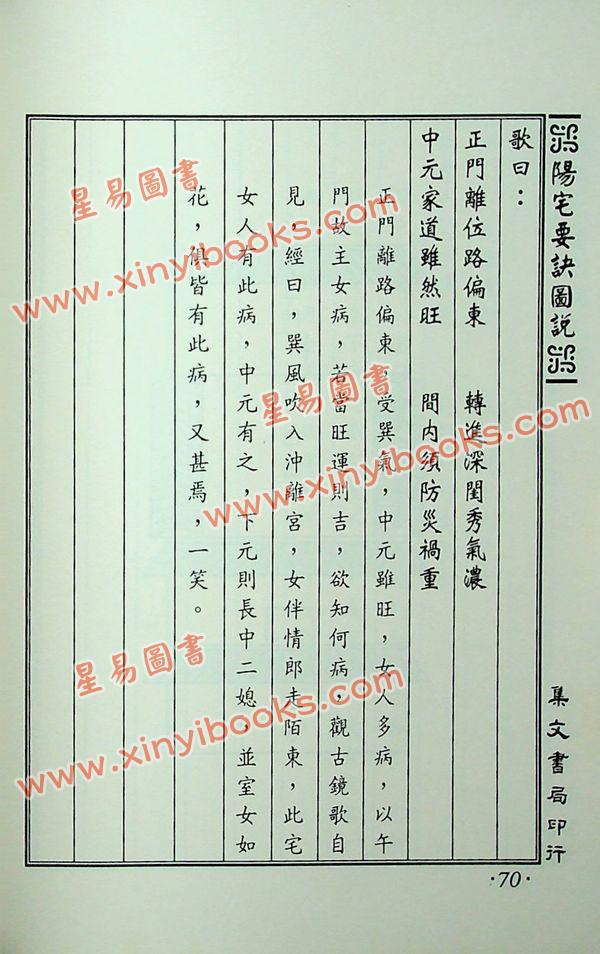 陽宅要訣圖說
歌曰：
正門離位路偏東　轉進深閨秀氣濃
中元家道雖然旺　間內須防災禍重
正門離路偏東，受巽氣，中元雖旺，女人多病，以午
門故主女病，若當旺運則吉，欲知何病，觀古鏡歌自
見，經曰，巽風吹入沖離宮，女伴情郎走陌東，此宅
女人有此病，中元有之，下元則長中二媳，並室女如
花，俱皆有此病，又甚焉，一笑。
集文書局印行
·70·
星易圖書
www.xinyibooks.com
星易圖書
www.xinyibooks.com
星易圖書
www.xinyibooks.com